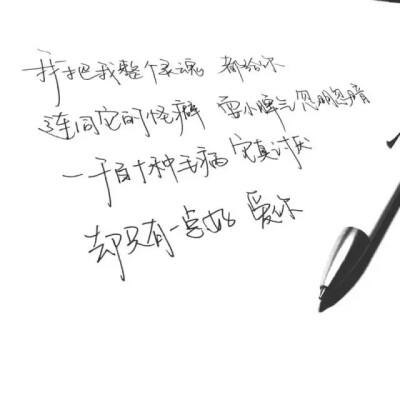 我把我整个灵魂 都给你
连同它的怪癖 耍小脾气 忽明忽暗
一千八百种毛病 它真讨厌
却只有一点好 爱你